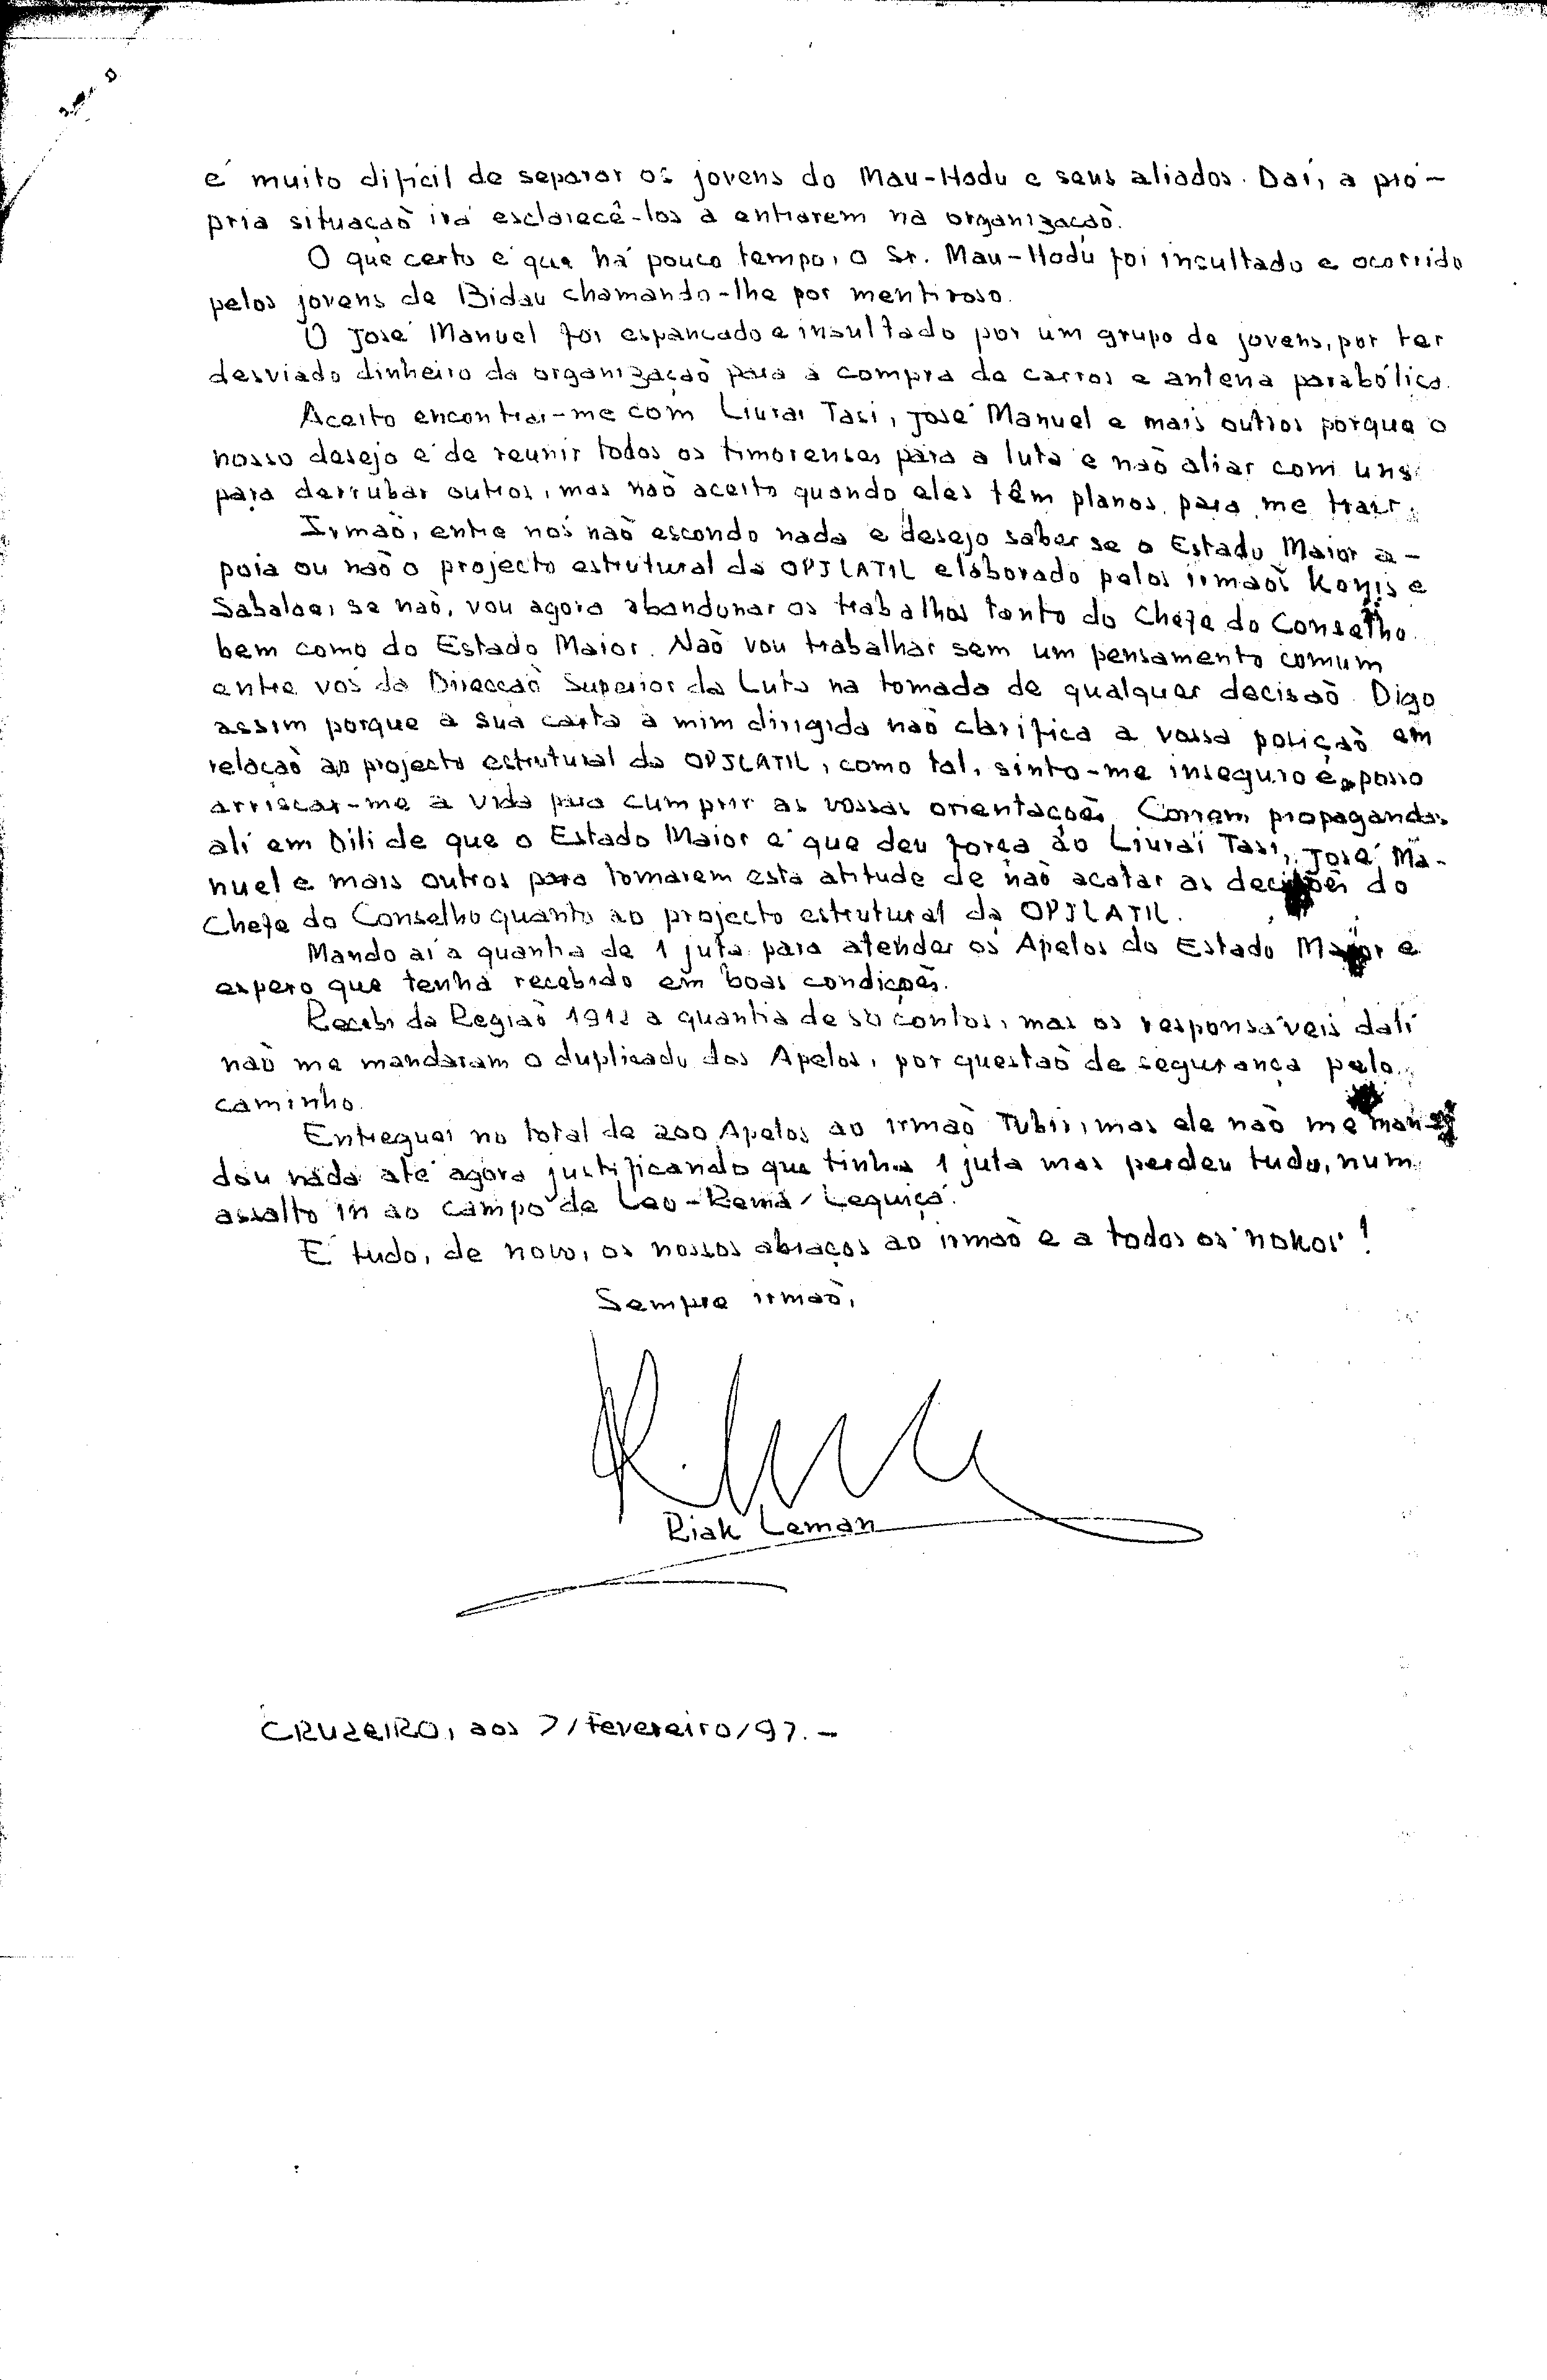 é muito difícil de separar os jovens do Mau-Hodu e seus aliados. Daí, a pró-
pria situaçaõ irá esclarecê-los a entrarem na organizaçaõ.
O que certo é que há pouco tempo, o Sr. Mau-Hodu foi insultado e ocorrido
pelos jovens de Bidau chamando-lhe por mentiroso.
O José Manuel foi espancado e insultado por um grupo de jovens, por ter
desviado dinheiro da organizaçaõ para a compra de carros e antena parabólica.
Aceito encontrar-me com Liurai Tasi, José Manuel e mais outros porque o
nosso desejo é de reunir todos os timorenses para a luta e naõ aliar com uns
para derrubar outros, mas naõ aceito quando eles têm planos para me trair.
Irmaõ, entre nós naõ escondo nada e desejo saber se o Estado Maior a-
poia ou naõ o projecto estrutural da OPJLATIL elaborado pelos irmaõs Konis e
Sabalae, se naõ, vou agora abandonar os trabalhos tanto do Chefe do Conselho
bem como do Estado Maior. Naõ vou trabalhar sem um pensamento comum
entre vós da Direcçaõ Superior da Luta na tomada de qualquer decisaõ. Digo
assim porque a sua carta a mim dirigida naõ clarifica a vossa posiçaõ em
relaçaõ ao projecto estrutural da OPJLATIL, como tal, sinto-me inseguro e posso
arriscar-me a vida para cumprir as vossas orientações. Correm propagandas
ali em Dili de que o Estado Maior é que deu força ao Liurai Tasi, José Ma-
nuel e mais outros para tomarem esta atitude de naõ acatar as decisões do
Chefe do Conselho quanto ao projecto estrutural da OPJLATIL.
Mando aí a quantia de 1 juta para atender os Apelos do Estado Maior e
espero que tenha recebido em boas condições.
Recebi da Regiaõ 1912 a quantia de 50 contos, mas os responsáveis dali
naõ me mandaram o duplicado dos Apelos, por questaõ de segurança pelo
caminho.
Entreguei no total de 200 Apelos ao irmaõ Tubir, mas ele naõ me man-
dou nada até agora justificando que tinha 1 juta mas perdeu tudo, num
assalto in ao campo de Leo-Rema/Lequiçá.
É tudo, de novo, os nossos abraços ao irmaõ e a todos os nokos!
Sempre irmaõ,
Riak Leman
CRUZEIRO, aos 7/fevereiro/97.-